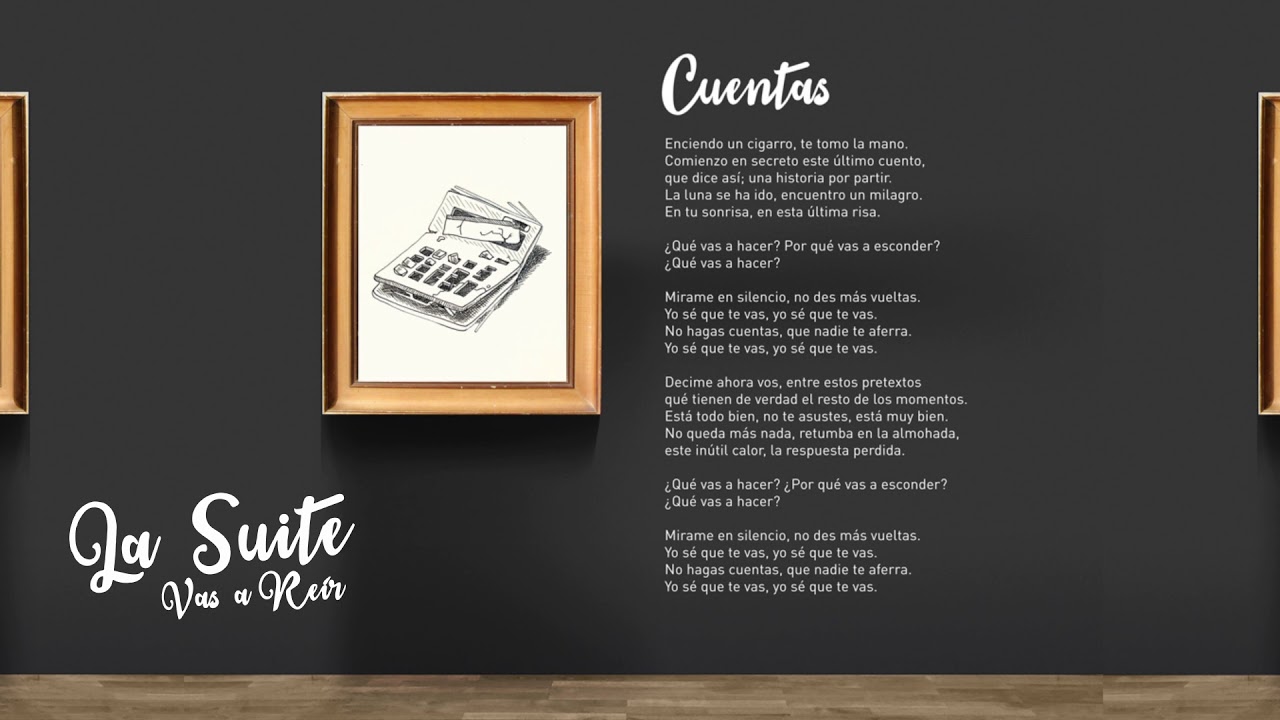 Cuentas
Enciendo un cigarro, te tomo la mano.
Comienzo en secreto este último cuento,
que dice así; una historia por partir.
La luna se ha ido, encuentro un milagro.
En tu sonrisa, en esta última risa.
¿Qué vas a hacer? Por qué vas a esconder?
¿Qué vas a hacer?
Mirame en silencio, no des más vueltas.
Yo sé que te vas, yo sé que te vas.
No hagas cuentas, que nadie te aferra.
Yo sé que te vas, yo sé que te vas.
Decime ahora vos, entre estos pretextos
qué tienen de verdad el resto de los momentos.
Está todo bien, no te asustes, está muy bien.
No queda más nada, retumba en la almohada,
este inútil calor, la respuesta perdida.
¿Qué vas a hacer? ¿Por qué vas a esconder?
¿Qué vas a hacer?
Mirame en silencio, no des más vueltas.
Yo sé que te vas, yo sé que te vas.
No hagas cuentas, que nadie te aferra.
Yo sé que te vas, yo sé que te vas.
La Suite
Vas a Reír